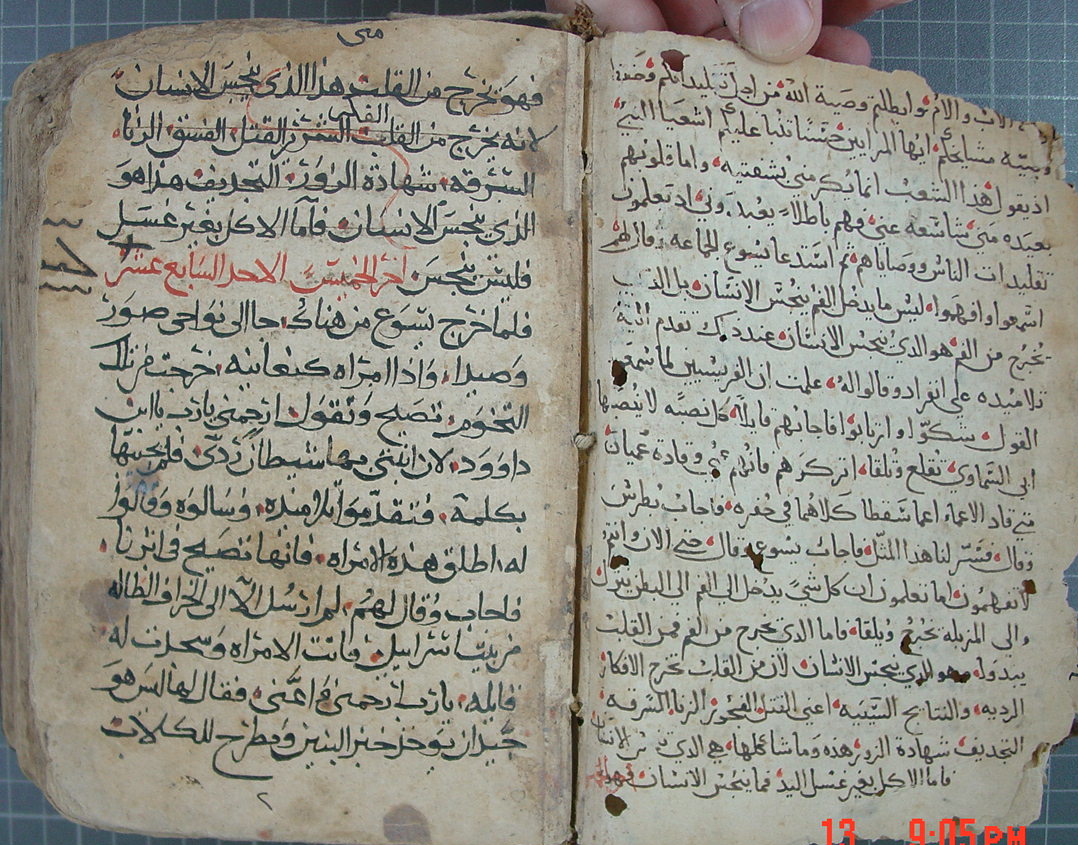 الاب والام وابطلتم وصية الله من اجل تقليداتكم وصفة
وسنه مشايخكم ايها المرايين حسنا تنبا عليكم اشعيا النبي
اذ يقول هذا الشعب انما يكرمني بشفتيه واما قلوبهم
بعيده مني شاسعه عني فهم باطلاً تعبد وني اذ تعلمون
تقليدات الناس ووصاياهم ثم استدعا يسوع الجماعه وقال لهم
اسمعوا وافهموا ليس ما يدخل الفم ينجس الانسان بل الذي
يخرج من الفم هو الذي ينجس الانسان عند ذلك تقدم اليه
تلاميذه علي انفراد وقالوا له علمت ان الفريسيين لما سمعو
القول شكوا وارتابوا فاجابهم قايلا كل نصبه لا ينصبها
ابي السماوي تقلع وتلقا اتركوهم فانهم عمي وقادة عميان
متي قاد الاعما اعما سقطا كلاهما في حفره فاجاب بطرس
وقال فسر لنا هذا المثل فاجاب يسوع وقال حتي الان وانتم
لا تفهمون اما تعلمون ان كل شي يدخل الي الفم الي البطن ينزل
والي المزبله تخرج ويلقا فاما الذي يخرج من الفم فمن القلب
يبدوا وهو الذي ينجس الانسان لان من القلب تخرج الافكار
الرديه والنتايج السيه اعني القتل الفجور الزنا السرقه
التجديف شهادة الزور هده وما شاكلها هي الذي تنجس الانسان
فاما الاكل بغير غسل اليد فما ينجس الانسان
متى
فهو يخرج من القلب هذا الذي ينجس الانسان
القلب
لانه يخرج من القلب الشر فر القتل الفسق الزنا
السرقه شهادة الزور التجديف هذا هو
الذي ينجس الانسان فاما الاكل بغير غسل
فليس ينجس اخر الخميس الاحد السابع عشر
فلما خرج يسوع من هناك جا الى نواحى صور
وصيدا واذا امراه كنعانيه خرجت من تلك
التخوم تصيح وتقول ارحمني يا رب يا ابن
داوود لان ابنتي بها شيطان ردى فلم يجبها
بكلمة فتقدموا تلاميذه وسالوه وقالوا
له اطلق هذه الامراه فانها تصيح في اثرنا
فاجاب وقال لهم لم ارسل الا الى الخراف الضاله
من بيت اسرايل فاتت الامراه وسجدت له
قايله يا رب ارحمني واعني فقال لها ليس هو
جيد ان يوخذ خبز البنين ويطرح للكلاب
13 9:05 PM